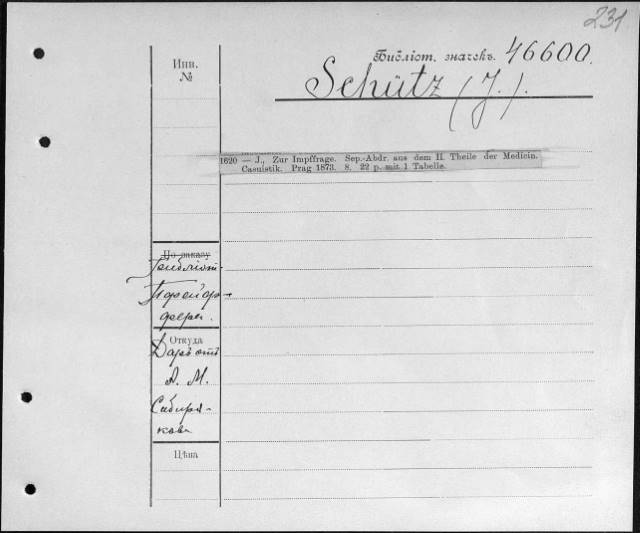 231
Инв.
№
Библіот. значекъ. 46600.
Schütz (J.).
1620 — J., Zur Impffrage. Sep.-Abdr. aus dem II. Theile der Medicin.
Casuistik. Prag 1873. 8. 22 p. mit 1 Tabelle.
По заказу
Библіот
Пфейф-
фера.
Откуда
Даръ отъ
А. М.
Сибиря-
кова
Цѣна